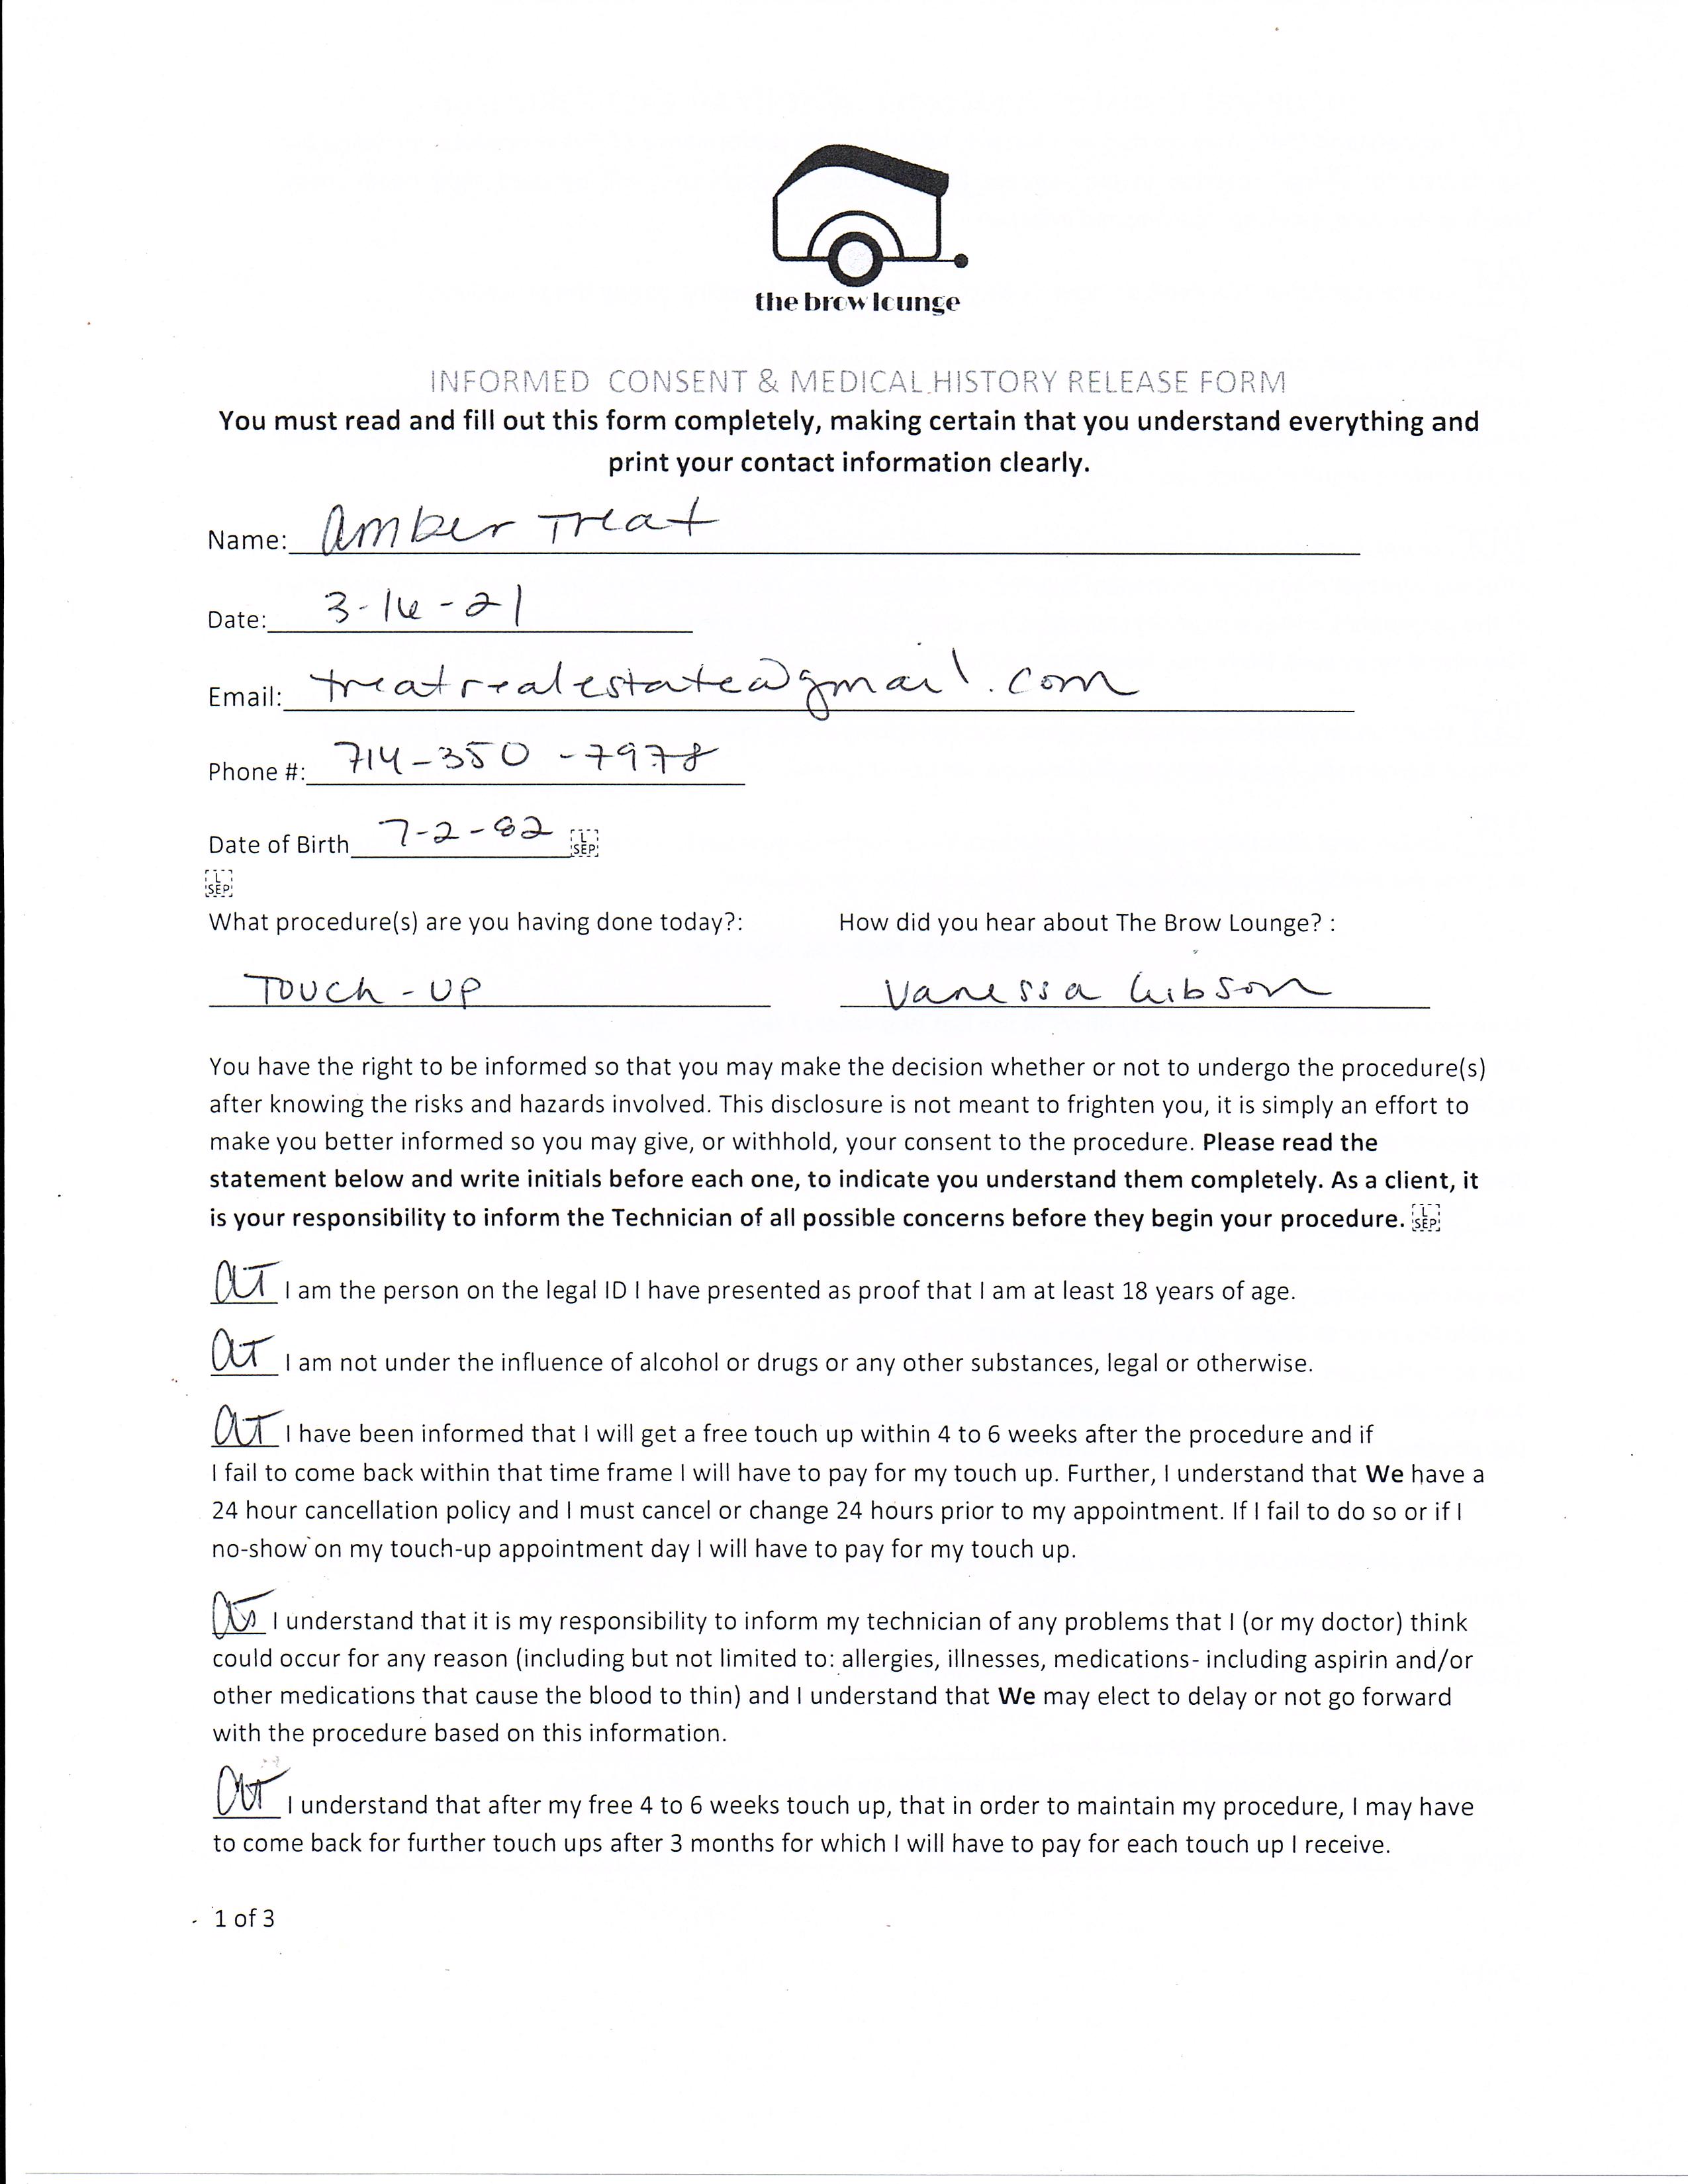 the brow lounge
INFORMED CONSENT & MEDICAL HISTORY RELEASE FORM
You must read and fill out this form completely, making certain that you understand everything and
print your contact information clearly.
Name: Amber Treat
Date: 3-16-21
Email: treatrealestate@gmail.com
Phone #: 714-350-7978
Date of Birth 7-2-82 L SEP
L SEP
What procedure(s) are you having done today?: How did you hear about The Brow Lounge? :
Touch-up Vanessa Gibson
You have the right to be informed so that you may make the decision whether or not to undergo the procedure(s)
after knowing the risks and hazards involved. This disclosure is not meant to frighten you, it is simply an effort to
make you better informed so you may give, or withhold, your consent to the procedure. Please read the
statement below and write initials before each one, to indicate you understand them completely. As a client, it
is your responsibility to inform the Technician of all possible concerns before they begin your procedure. L SEP
AT I am the person on the legal ID I have presented as proof that I am at least 18 years of age.
AT I am not under the influence of alcohol or drugs or any other substances, legal or otherwise.
AT I have been informed that I will get a free touch up within 4 to 6 weeks after the procedure and if
I fail to come back within that time frame I will have to pay for my touch up. Further, I understand that We have a
24 hour cancellation policy and I must cancel or change 24 hours prior to my appointment. If I fail to do so or if I
no-show on my touch-up appointment day I will have to pay for my touch up.
AT I understand that it is my responsibility to inform my technician of any problems that I (or my doctor) think
could occur for any reason (including but not limited to: allergies, illnesses, medications- including aspirin and/or
other medications that cause the blood to thin) and I understand that We may elect to delay or not go forward
with the procedure based on this information.
AT I understand that after my free 4 to 6 weeks touch up, that in order to maintain my procedure, I may have
to come back for further touch ups after 3 months for which I will have to pay for each touch up I receive.
1 of 3